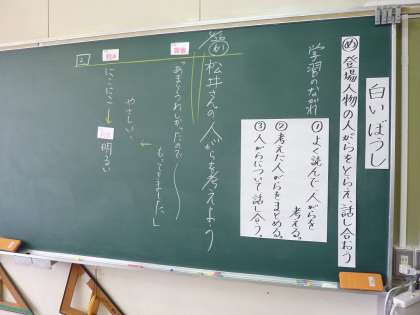 白いぼうし
め 登場人物の人がらをとらえ、話し合おう
学習のながれ
① よく読んで人がらを考える。
② 考えた人がらをまとめる。
③ 人がらについて話し合う。
松井さんの人がらを考えよう
「あまりうれしかったので、
もってきました。」
やさしい、
にこにこ
明るい